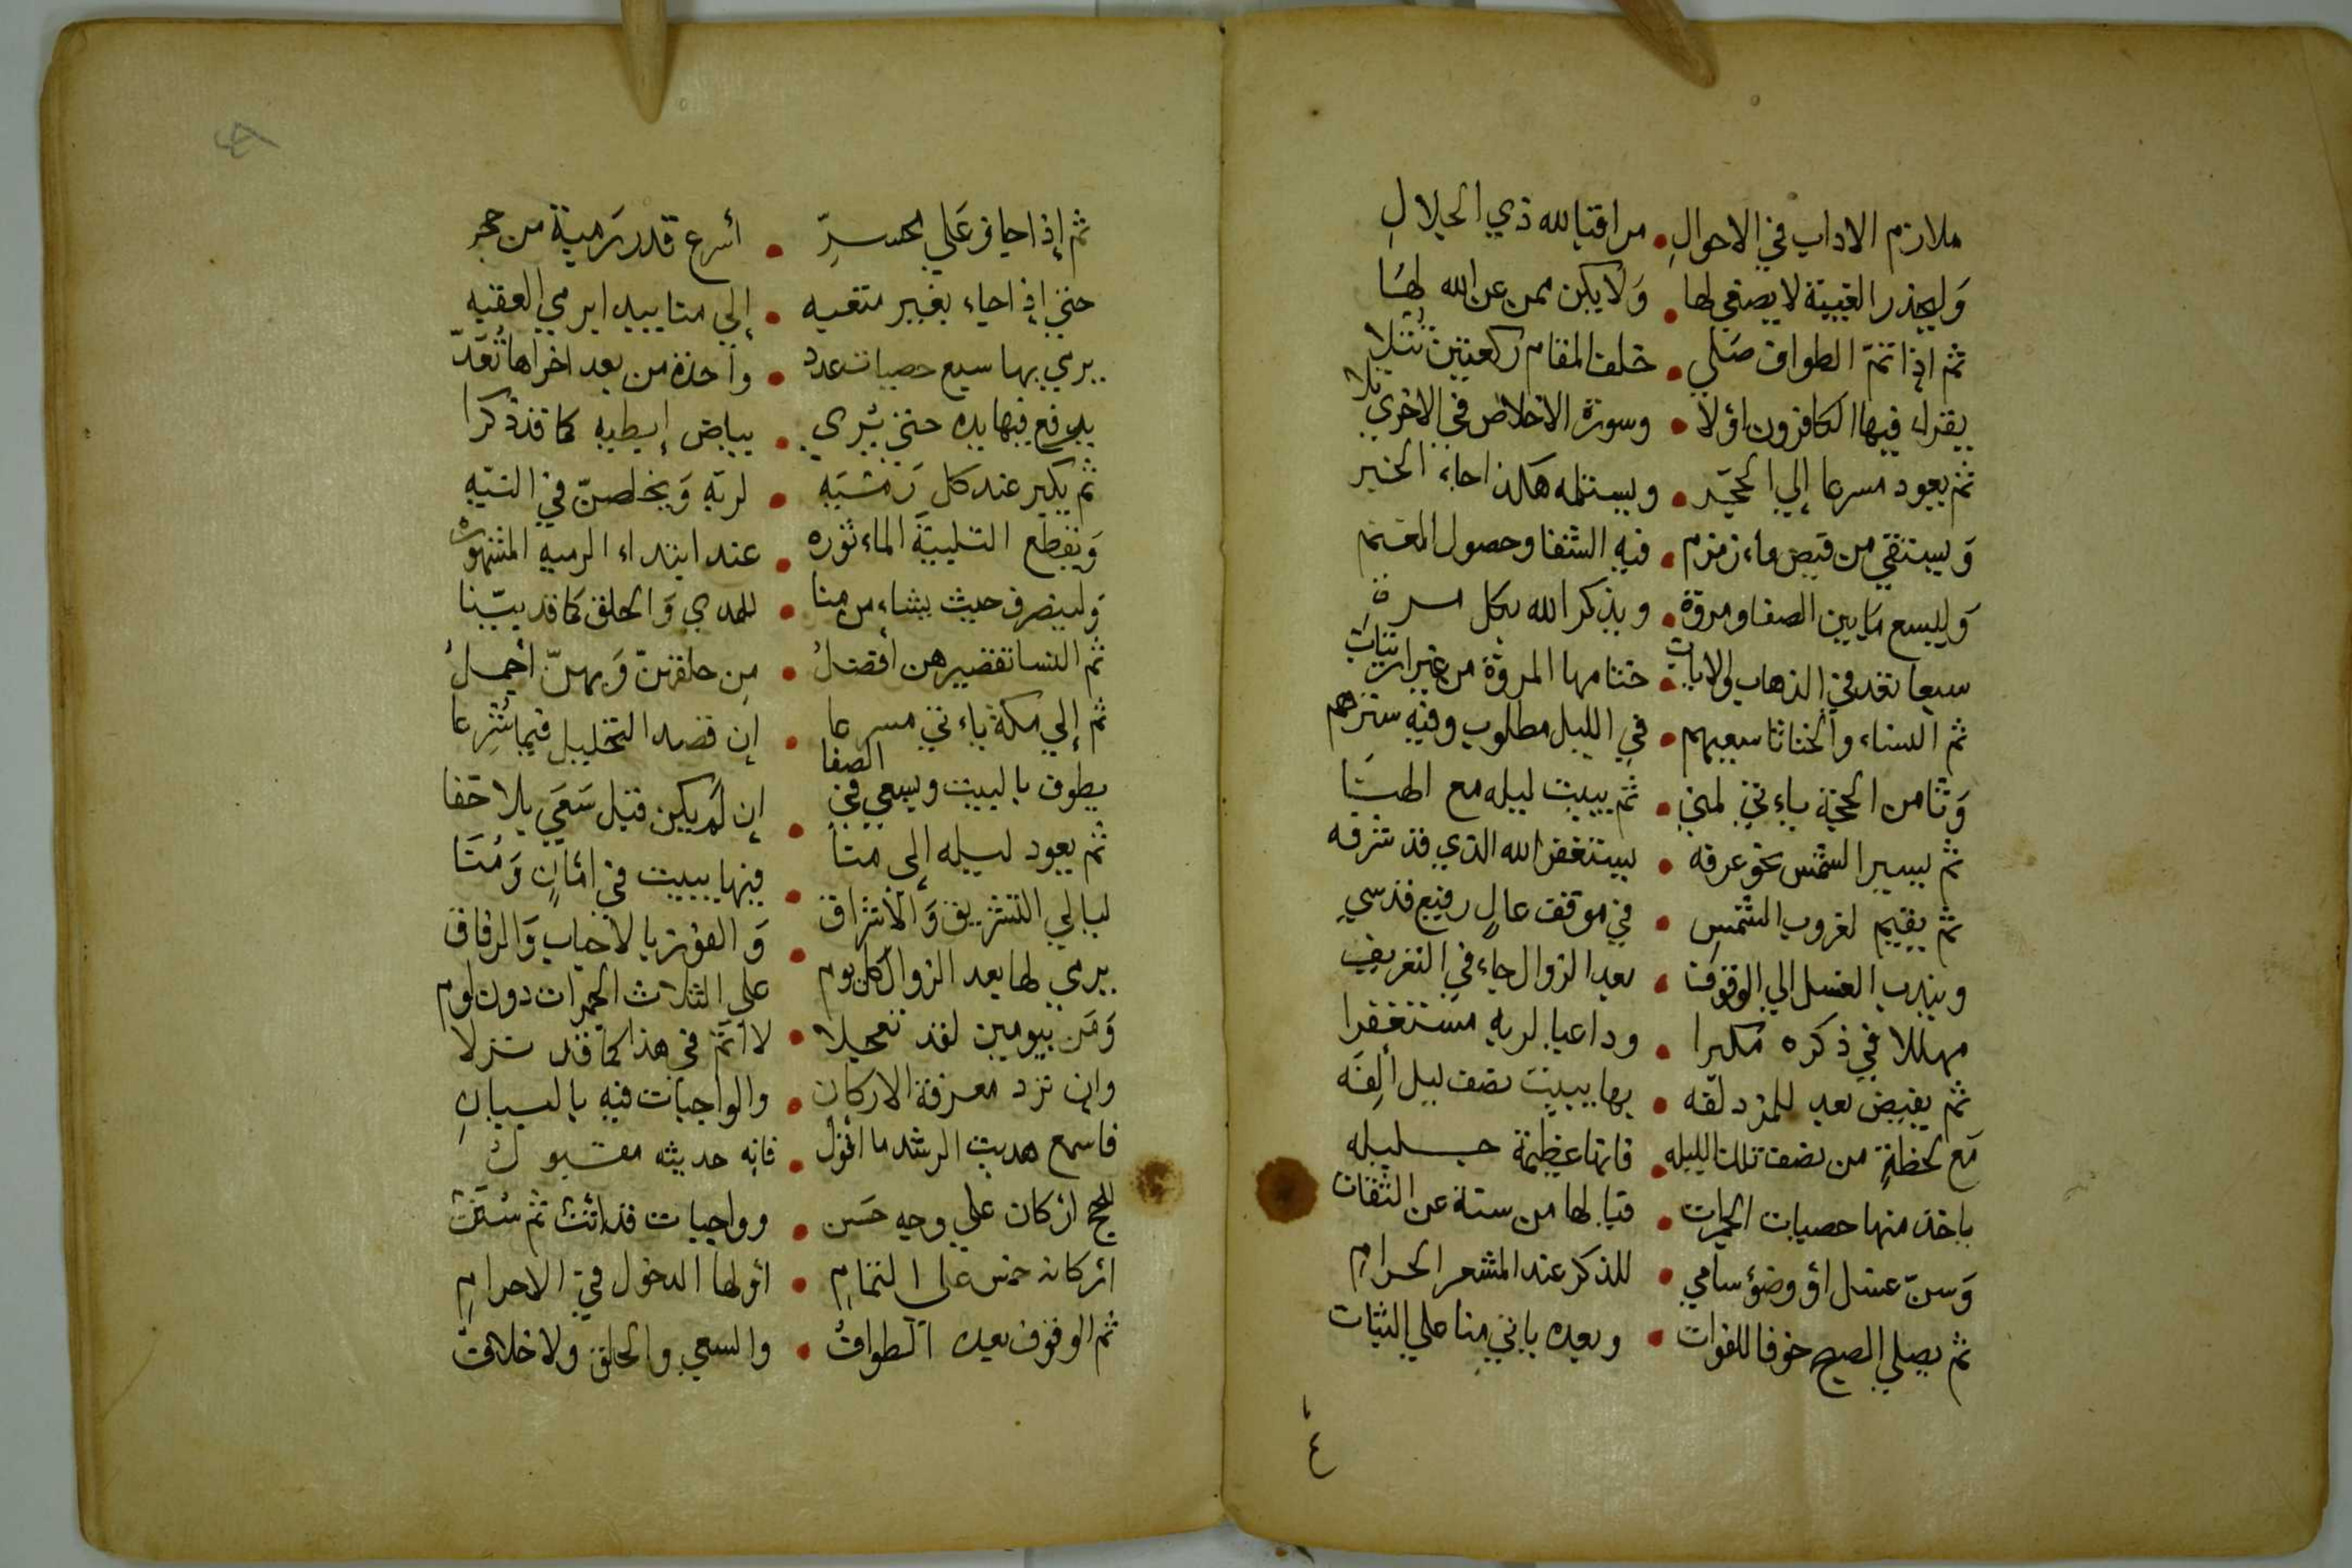 ملازم الاداب في الاحوالِ • مراقبا لله ذي الجلالِ
وَليحذر الغيبة لا يصغي لها • وَلا يكن ممن عن الله لهَا
ثم اذا تمّ الطواف صَلي • خلف المقام ركعتين تُتلا
يقرا فيها الكافرون اوّلا • وسورة الاخلاص في الاخرى تلا
ثم يعود مسرعا إلي الحجَر • ويستلمه هكذا جاء الخبر
وَيستقي من فيض ماء زمزم • فيه الشفا وحصول المغنم
وَليسع مَا بين الصفا ومروة • ويذكر الله بكل مرةِ
سبعا تعد في الذهاب والاياب • ختامها المروة من غير ارتيابِ
ثم النساء والخناثا سعيهم • في الليل مطلوب وفيه سترهم
وَثامن الحجة ياءتي لمني • ثم يبيت ليله مع الهنَا
ثم يسير الشمس نحو عرفه • يستغفر الله الذي قد شرفه
ثم يقيم لغروب الشمسِ • في موقف عالٍ رفيع قدسي
ويندب الغسل الي الوقوف • بعد الزوال جاء في التعريفِ
مهللا في ذكره مكبرا • وداعيا لربه مستغفرا
ثم يفيض بعد للمزدلفه • بها يبيت نصف ليل ألِفَه
مَع لحظةٍ من نصف تلك الليله • فانها عظيمة جليله
ياخذ منها حصيات الجمرات • فيا لها من سنة عن الثقات
وَسنّ غسل اوْ وضوْ سامي • للذكر عند المشعر الحرامِ
ثم يصلي الصبح خوفا للفوات • وبعده ياتي منا علي الثبات
٤
ثم إذا حاذ عَلي محسرِّ • أسرع قدر رَمية من حجر
حتي إذا جاء بغير متعبه • إلي منا يبدا يرمي العقبه
يرمي بها سبع حصيات عدد • واحدة من بعد اخراها تُعَدّ
يرفع فيها يده حتي يُرى • بياض إبطيه كما قد ذكرا
ثم يكبر عند كل رَميَه • لربه وَيخلصنّ في النيّه
وَيقطع التلبيَةَ الماءثوره • عند ابتداء الرميه المشهوره
وَلينصرف حيث يشاء من منا • للهدي وَالحلق كما قد بيّنا
ثم النسا تقصيرهن أفضلُ • مِن حلقهنّ وَبهنّ أجملُ
ثم إلي مكة ياءتي مسرعا • إن قصد التحليل فيما شُرِعا
يطوف بالبيت ويسعي في الصفا • إن لَم يكن قبل سَعَي بلا خفا
ثم يعود ليله إلى منا • فيها يبيت في امَانٍ وَمُنَا
ليالي التشريق وَالأشراق • وَالفوز بالاحباب وَالرفاق
يرمي لها بعد الزوال كل يوم • علي الثلاث الجمرات دون لوم
وَمَن بيومين لقد تعجلا • لا اثم في هذا كما قد نزلا
وإن ترد معرفة الاركانِ • والواجبات فيه بالبيانِ
فاسمع هديت الرشد ما اقول • فانه حديثه مقبول
للحج اركان علي وجه حَسَن • وواجبات قد اتت ثم سُنَن
اركانه خمس على التمامِ • أولها الدخول في الاحرامِ
ثم الوقوف بعده الطوافُ • والسعي والحلق ولا خلافُ